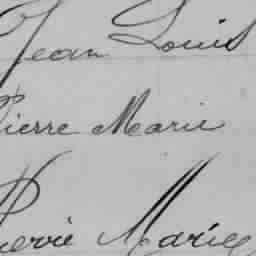 Jean Louis
Pierre Marie
Pierre Marie